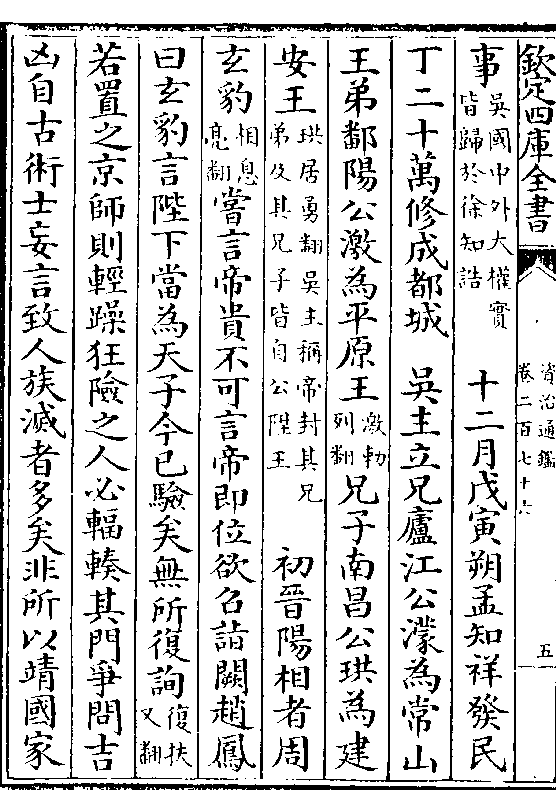 欽定四庫全書
資治通鑑
卷二百七十六
五
事吳國中外大權實皆歸於徐知誥 十二月戊寅朔孟知祥發民
丁二十萬修成都城 吳主立兄廬江公濛為常山
王弟鄱陽公澈為平原王澈勑列翻兄子南昌公珙為建
安王珙居勇翻吳主稱帝封其兄弟及其兄子皆自公陞王 初晉陽相者周
玄豹相息亮翻嘗言帝貴不可言帝即位欲召詣闕趙鳳
曰玄豹言陛下當為天子今已驗矣無所復詢復扶又翻
若置之京師則輕躁狂險之人必輻輳其門爭問吉
凶自古術士妄言致人族滅者多矣非所以靖國家